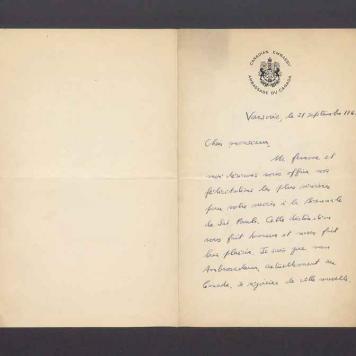 CANADIAN EMBASSY
AMBASSADE DU CANADA
Varsovie, le 21 septembre 196
Cher monsieur,
Ma femme et
moi désirons vous offrir nos
félicitations les plus sincères
pour votre succès à la Biennale
de São Paulo. Cette distinction
vous fait honneur et nous fait
bien plaisir. Je sais que mon
Ambassadeur, actuellement au
Canada, se réjouira de cette nouvelle.